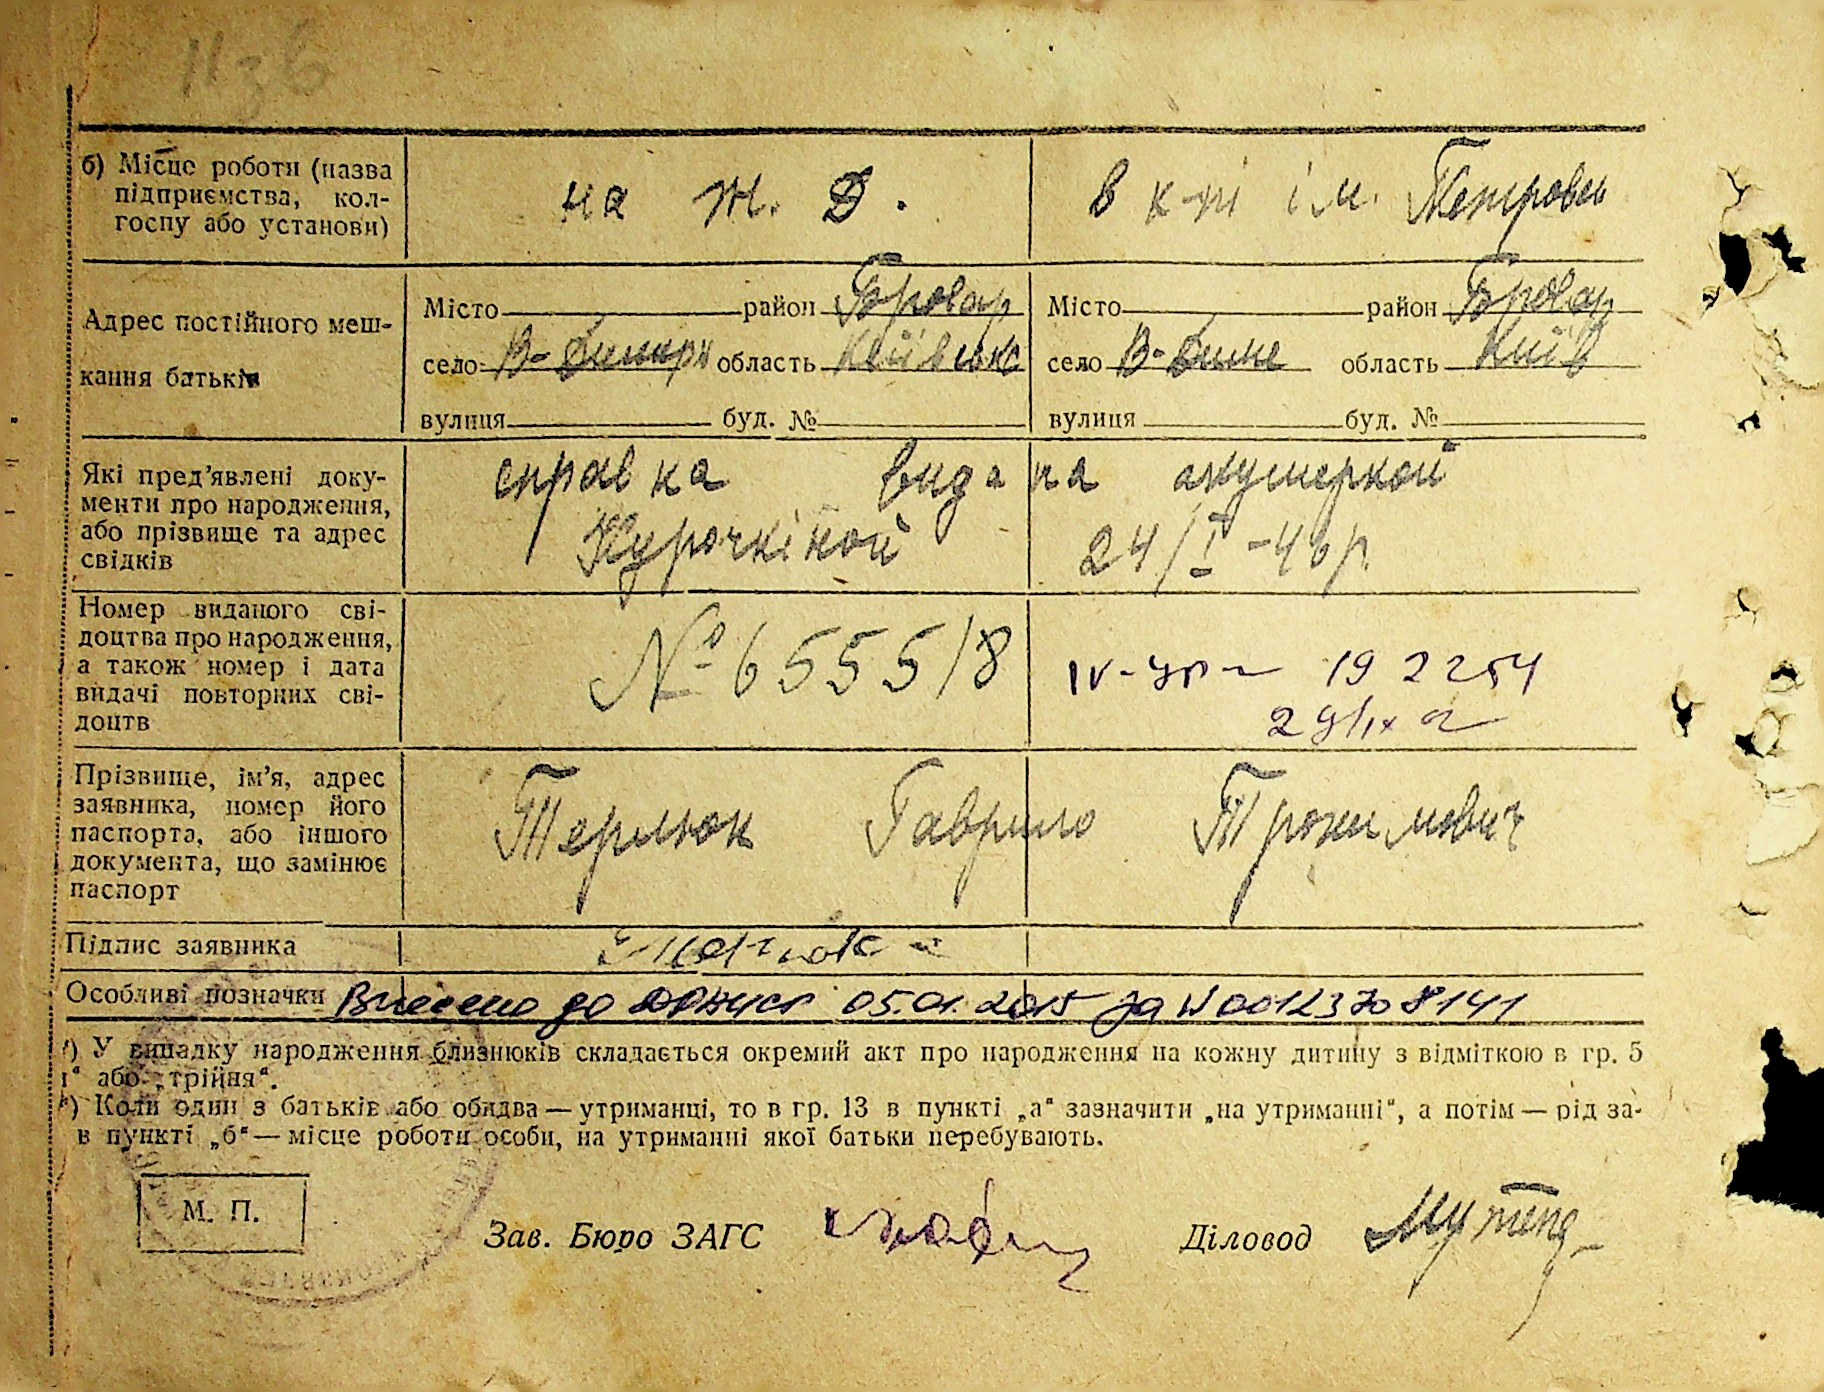 11
б) Місце роботи (назва
підприємства, кол-
госпу або установи)
на ж. Д.
в к-пі ім. Петровсь
Адрес постійного меш-
кання батьків
Місто район Бровар
село В-Димерк область Київськ
вулиця буд. №
Місто район Бровар
село В-Диме область Київ
вулиця буд. №
Які пред'явлені доку-
менти про народження,
або прізвище та адрес
свідків
справка видана акушеркой
Курочкіной 24/I-46р.
Номер виданого сві-
доцтва про народження,
а також номер і дата
видачі повторних сві-
доцтв
№ 6555/8
IV-УР 192254
Прізвище, ім'я, адрес
заявника, номер його
паспорта, або іншого
документа, що замінює
паспорт
Терлюк Гаврило Трохимович
Підпис заявника
Особливі позначки Внесено до 05.01.2015 за №00123708141
¹) У випадку народження близнюків складається окремий акт про народження на кожну дитину з відміткою в гр. 5
і“ або „трійня“.
²) Коли один з батьків або обидва — утриманці, то в гр. 13 в пункті „а“ зазначити „на утриманні“, а потім — рід за-
в пункті „б“ — місце роботи особи, на утриманні якої батьки перебувають.
М. П.
Зав. Бюро ЗАГС
Діловод